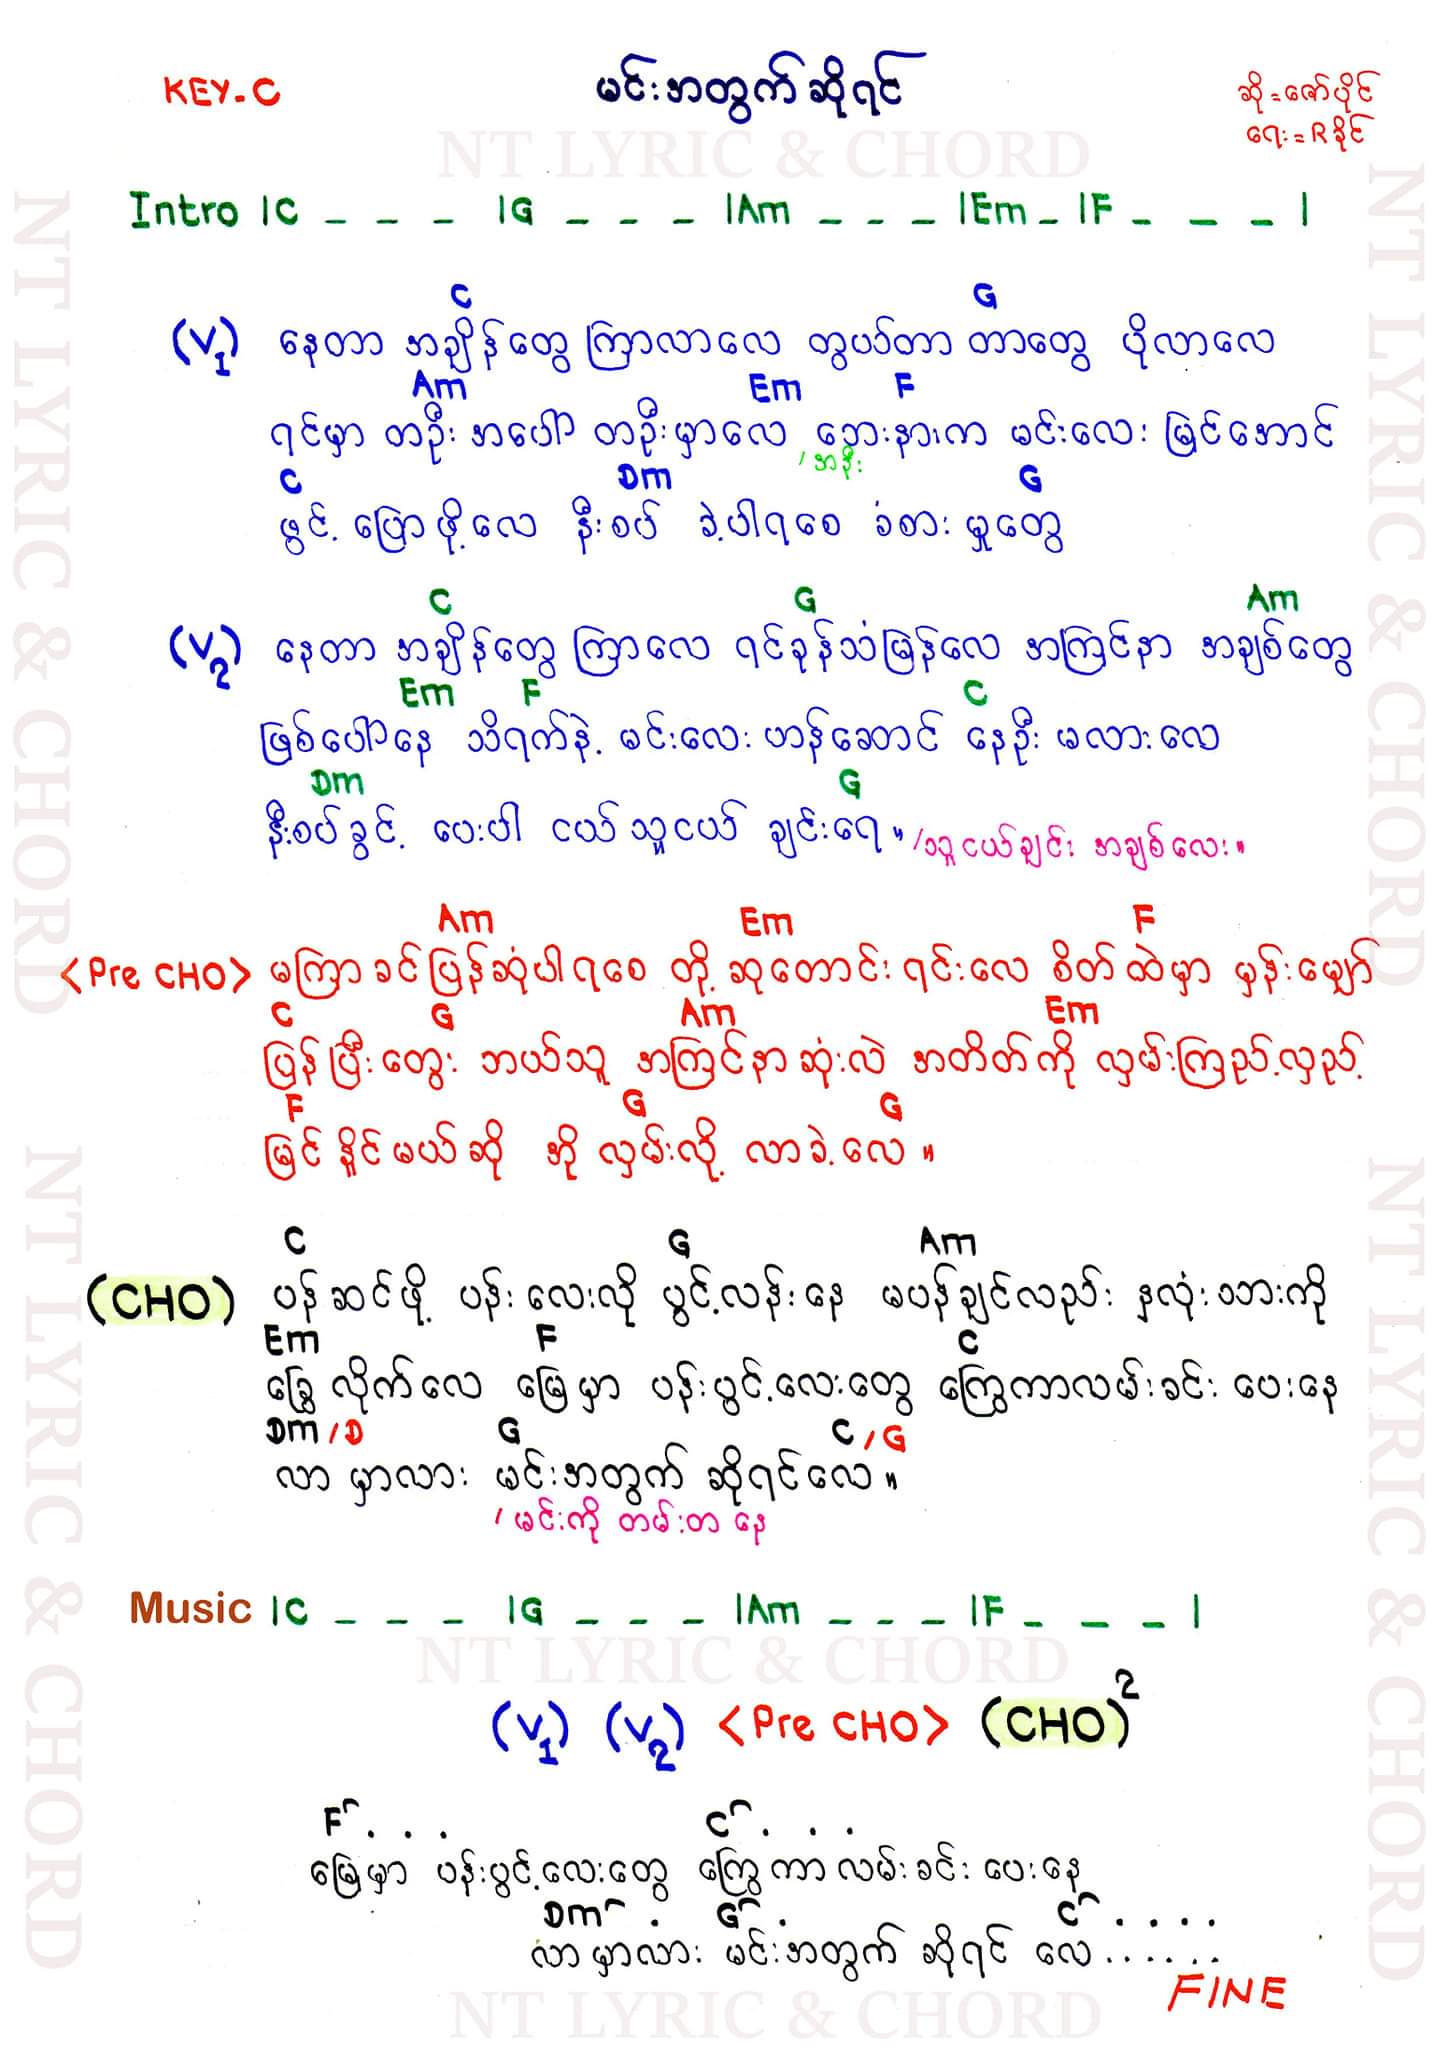 KEY-C
မင်းအတွက်ဆိုရင်
ဆို = ဇော်ပိုင်
ရေး = R ခိုင်
NT LYRIC & CHORD
Intro |C _ _ _ |G _ _ _ |Am _ _ _ |Em _ |F _ _ _ |
C G
(V1) နေတာ အချိန်တွေ ကြာလာလေ တွယ်တာ တာတွေ ပိုလာလေ
Am Em F
ရင်မှာ တဦး အပေါ် တဦးမှာလေ ဘေးနားက မင်းလေး မြင်အောင်
/အနီး
C Dm G
ဖွင့် ပြောဖို့လေ နီးစပ် ခဲ့ပါရစေ ခံစား မှုတွေ
C G Am
(V2) နေတာ အချိန်တွေ ကြာလေ ရင်ခုန်သံမြန်လေ အကြင်နာ အချစ်တွေ
Em F C
ဖြစ်ပေါ်နေ သိရက်နဲ့ မင်းလေး ဟန်ဆောင် နေဦး မလားလေ
Dm G
နီးစပ်ခွင့် ပေးပါ ငယ်သူငယ် ချင်းရေ။ /သူငယ်ချင်း အချစ်လေး။
Am Em F
<Pre CHO> မကြာခင်ပြန်ဆုံပါရစေ တို့ ဆုတောင်းရင်းလေ စိတ်ထဲမှာ မှန်းမျှော်
C G Am Em
ပြန်ပြီးတွေး ဘယ်သူ အကြင်နာဆုံးလဲ အတိတ်ကို လှမ်းကြည့်လှည့်
F G G
မြင်နိုင်မယ်ဆို အို လှမ်းလို့ လာခဲ့လေ။
C G Am
(CHO) ပန်ဆင်ဖို့ ပန်းလေးလို ပွင့်လန်းနေ မပန်ချင်လည်း နှလုံးသားကို
Em F C
ခြွေလိုက်လေ မြေမှာ ပန်းပွင့်လေးတွေ ကြွေကာလမ်းခင်း ပေးနေ
Dm /D G C /G
လာမှာလား မင်းအတွက် ဆိုရင်လေ။
/မင်းကို တမ်းတ နေ
Music |C _ _ _ |G _ _ _ |Am _ _ _ |F _ _ _ |
NT LYRIC & CHORD
(V1) (V2) <Pre CHO> (CHO)2
F . . . C . . .
မြေမှာ ပန်းပွင့်လေးတွေ ကြွေကာလမ်းခင်း ပေးနေ
Dm . G . C . . . .
လာမှာလား မင်းအတွက် ဆိုရင် လေ . . . . . .
FINE
NT LYRIC & CHORD
NT LYRIC & CHORD
NT LYRIC & CHORD
NT LYRIC & CHORD
NT LYRIC & CHORD